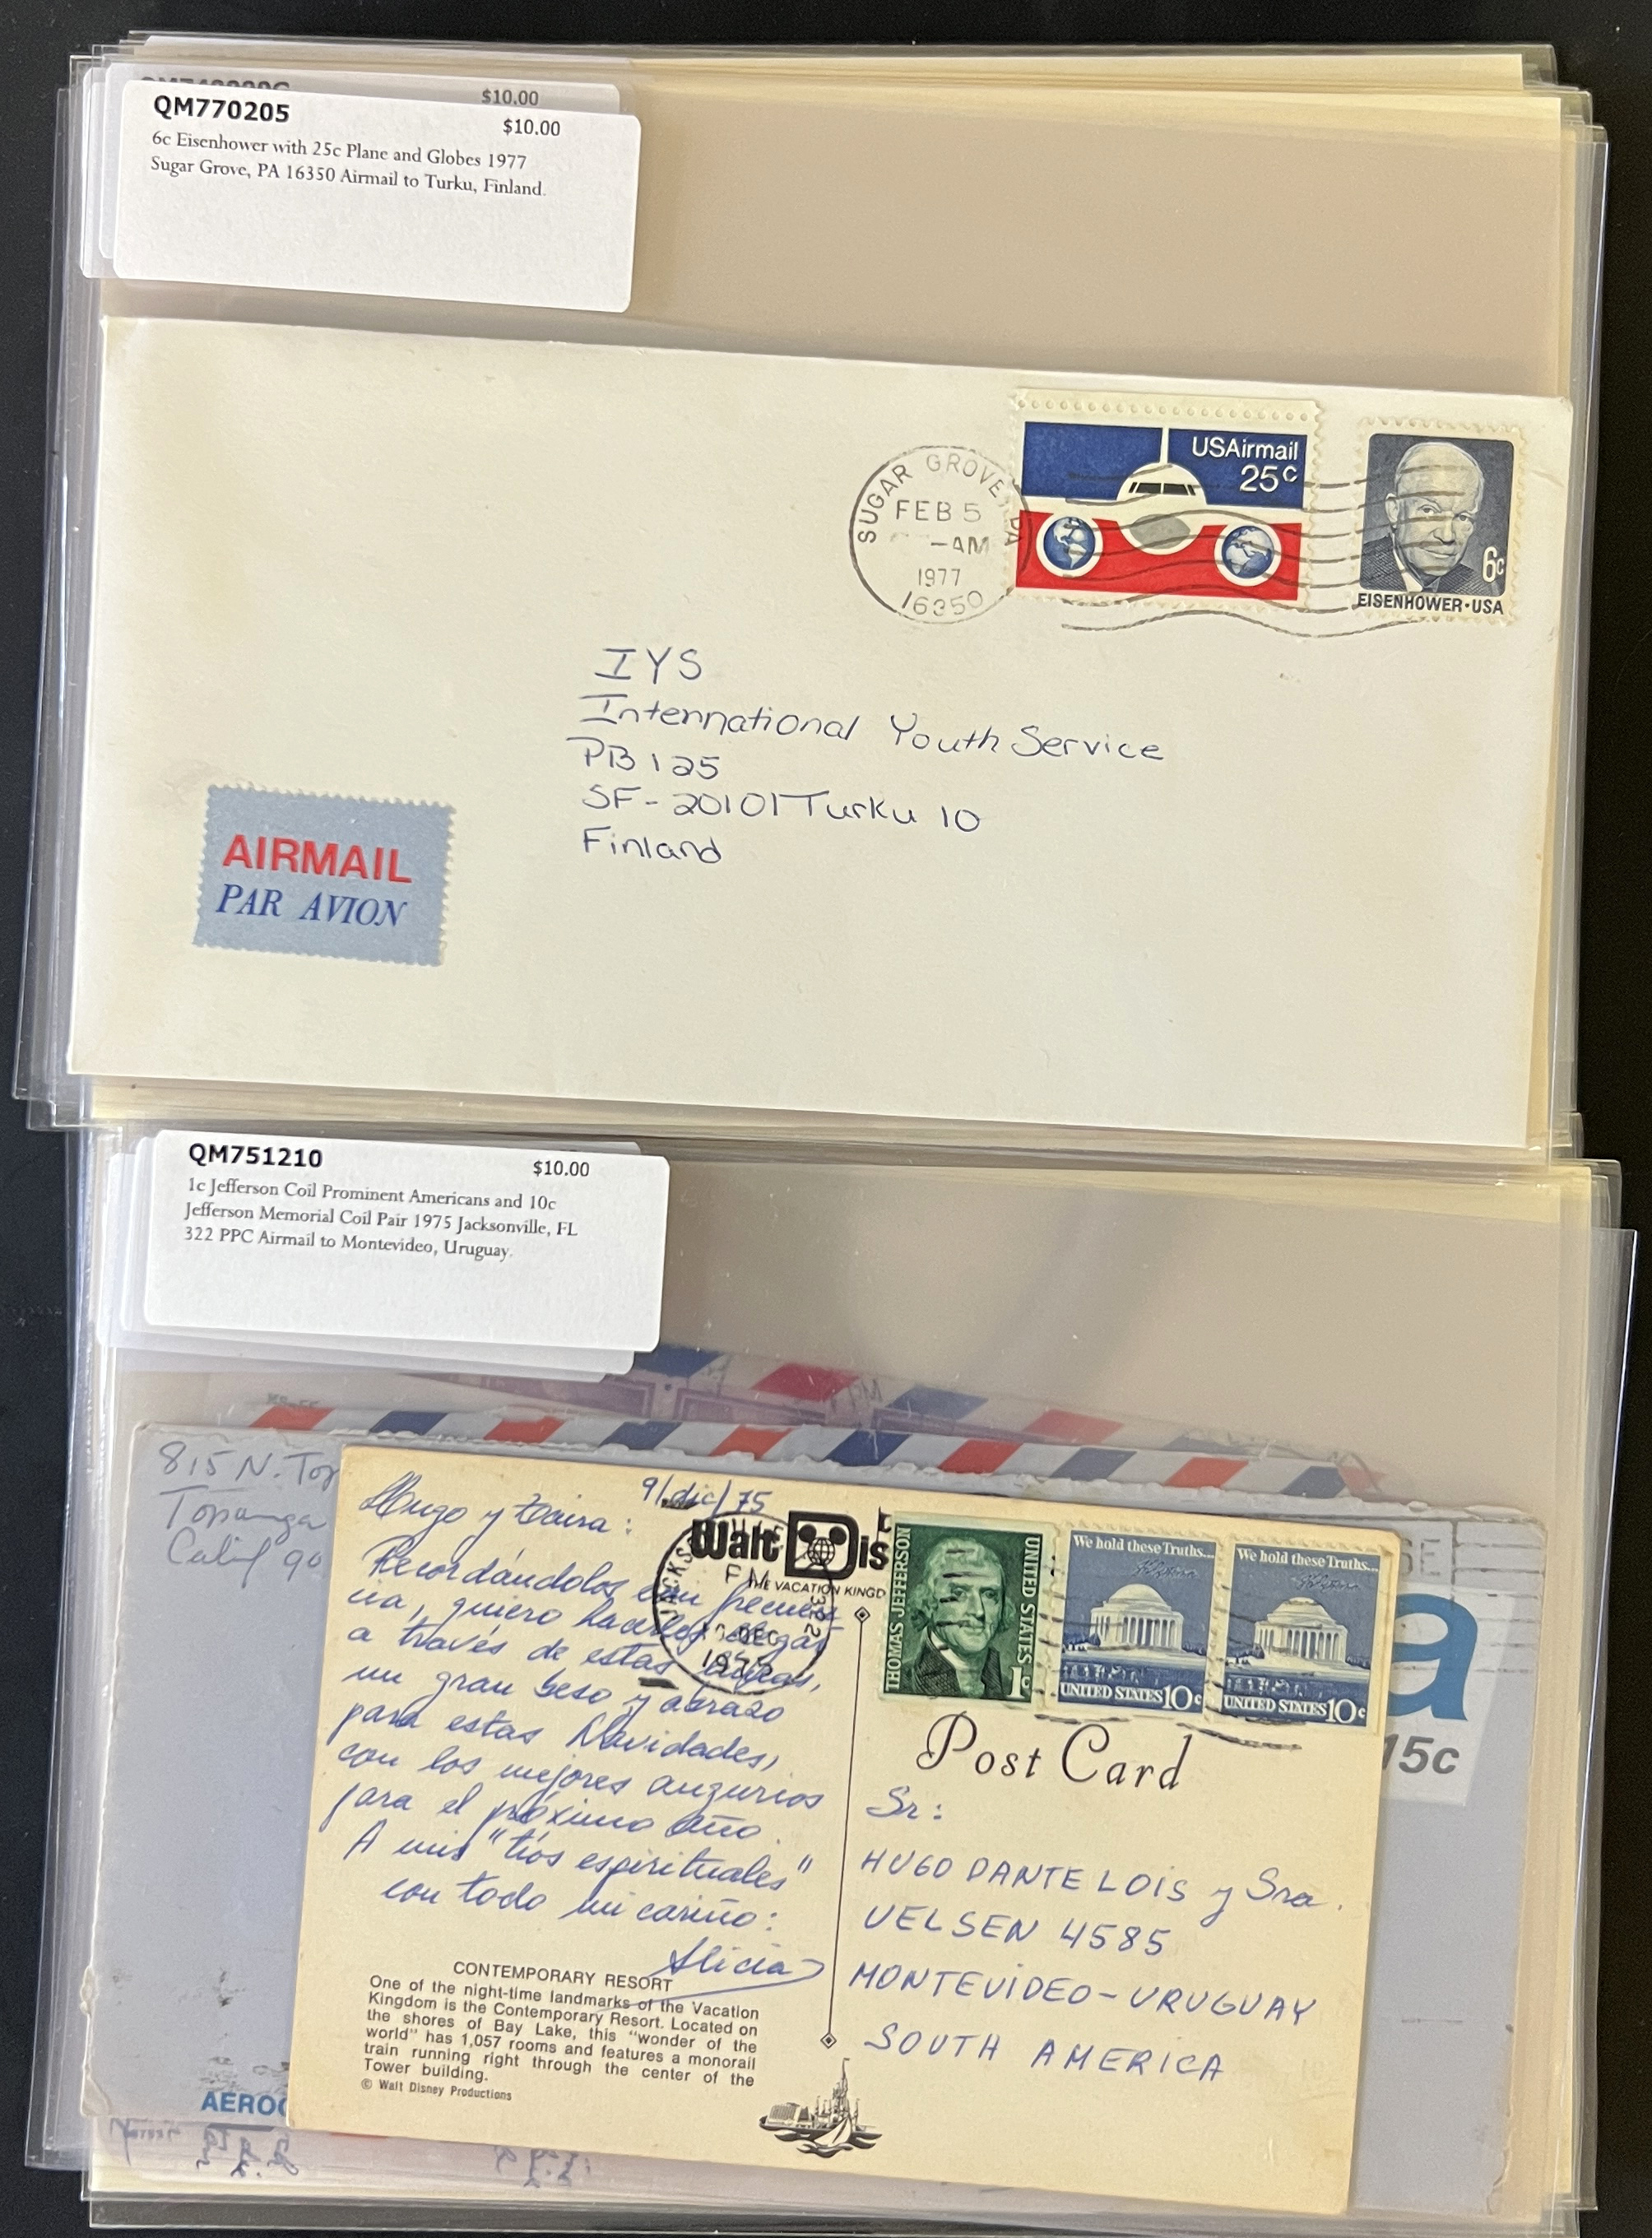 $10.00
QM770205
$10.00
6c Eisenhower with 25c Plane and Globes 1977
Sugar Grove, PA 16350 Airmail to Turku, Finland.
SUGAR GROVE, PA
FEB 5
-AM
1977
16350
USAirmail
25c
6c
EISENHOWER·USA
IYS
International Youth Service
PB 125
SF-20101 Turku 10
Finland
AIRMAIL
PAR AVION
QM751210
$10.00
1c Jefferson Coil Prominent Americans and 10c
Jefferson Memorial Coil Pair 1975 Jacksonville, FL
322 PPC Airmail to Montevideo, Uruguay.
815 N. Top
Topanga
Calif 90
AEROG
a
15c
9/dic/75
Hugo y
Recordándolos con frecuen-
cia, quiero hacerles llegar
a través de estas líneas,
un gran beso y abrazo
para estas Navidades,
con los mejores augurios
para el próximo año.
A mis "tíos espirituales"
con todo mi cariño:
Alicia
Walt Dis
THE VACATION KINGD
PM
DEC
322
THOMAS JEFFERSON
UNITED STATES
1c
We hold these Truths...
UNITED STATES 10c
We hold these Truths...
UNITED STATES 10c
Post Card
Sr:
HUGO DANTE LOIS y Sra.
VELSEN 4585
MONTEVIDEO-URUGUAY
SOUTH AMERICA
CONTEMPORARY RESORT
One of the night-time landmarks of the Vacation
Kingdom is the Contemporary Resort. Located on
the shores of Bay Lake, this "wonder of the
world" has 1,057 rooms and features a monorail
train running right through the center of the
Tower building.
© Walt Disney Productions